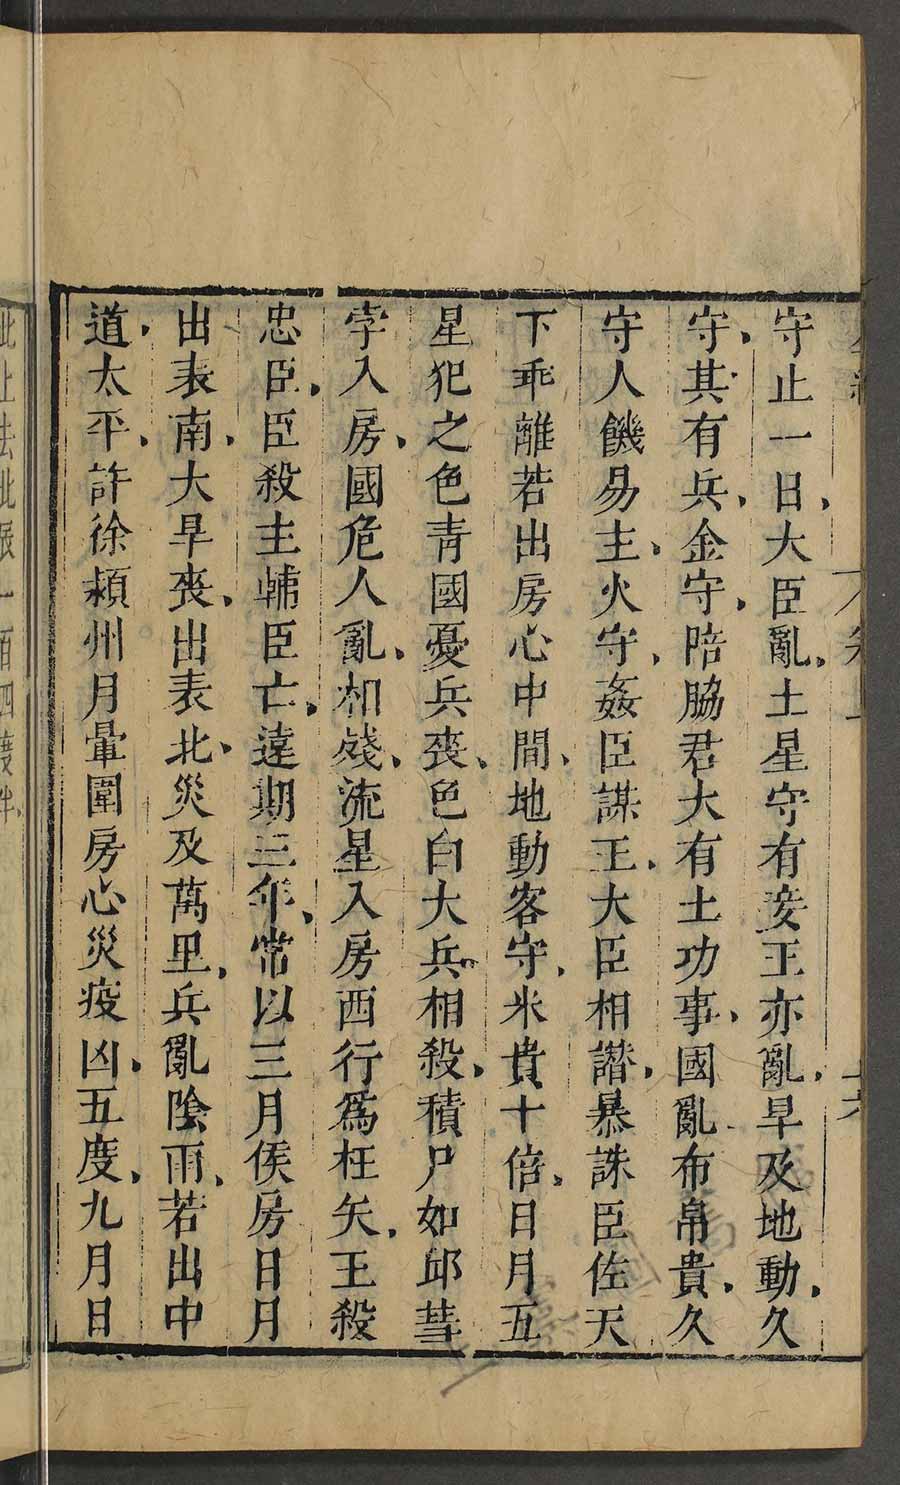 守止一日大臣亂土星守有妾王亦亂旱及地動久
守其有兵金守陪脇君大有土功事國亂布帛貴久
守人饑易主火守姦臣謀王大臣相譖暴誅臣佐天
下乖離若出房心中間地動客守米貴十倍日月五
星犯之色青國憂兵喪色白大兵相殺積尸如邱彗
孛入房國危人亂相殘流星入房西行為枉矢王殺
忠臣臣殺主輔臣亡遠期三年常以三月侯房日月
出表南大旱喪出表北災及萬里兵亂陰雨若出中
道太平許徐潁州月暈圍房心災疫凶五度九月日